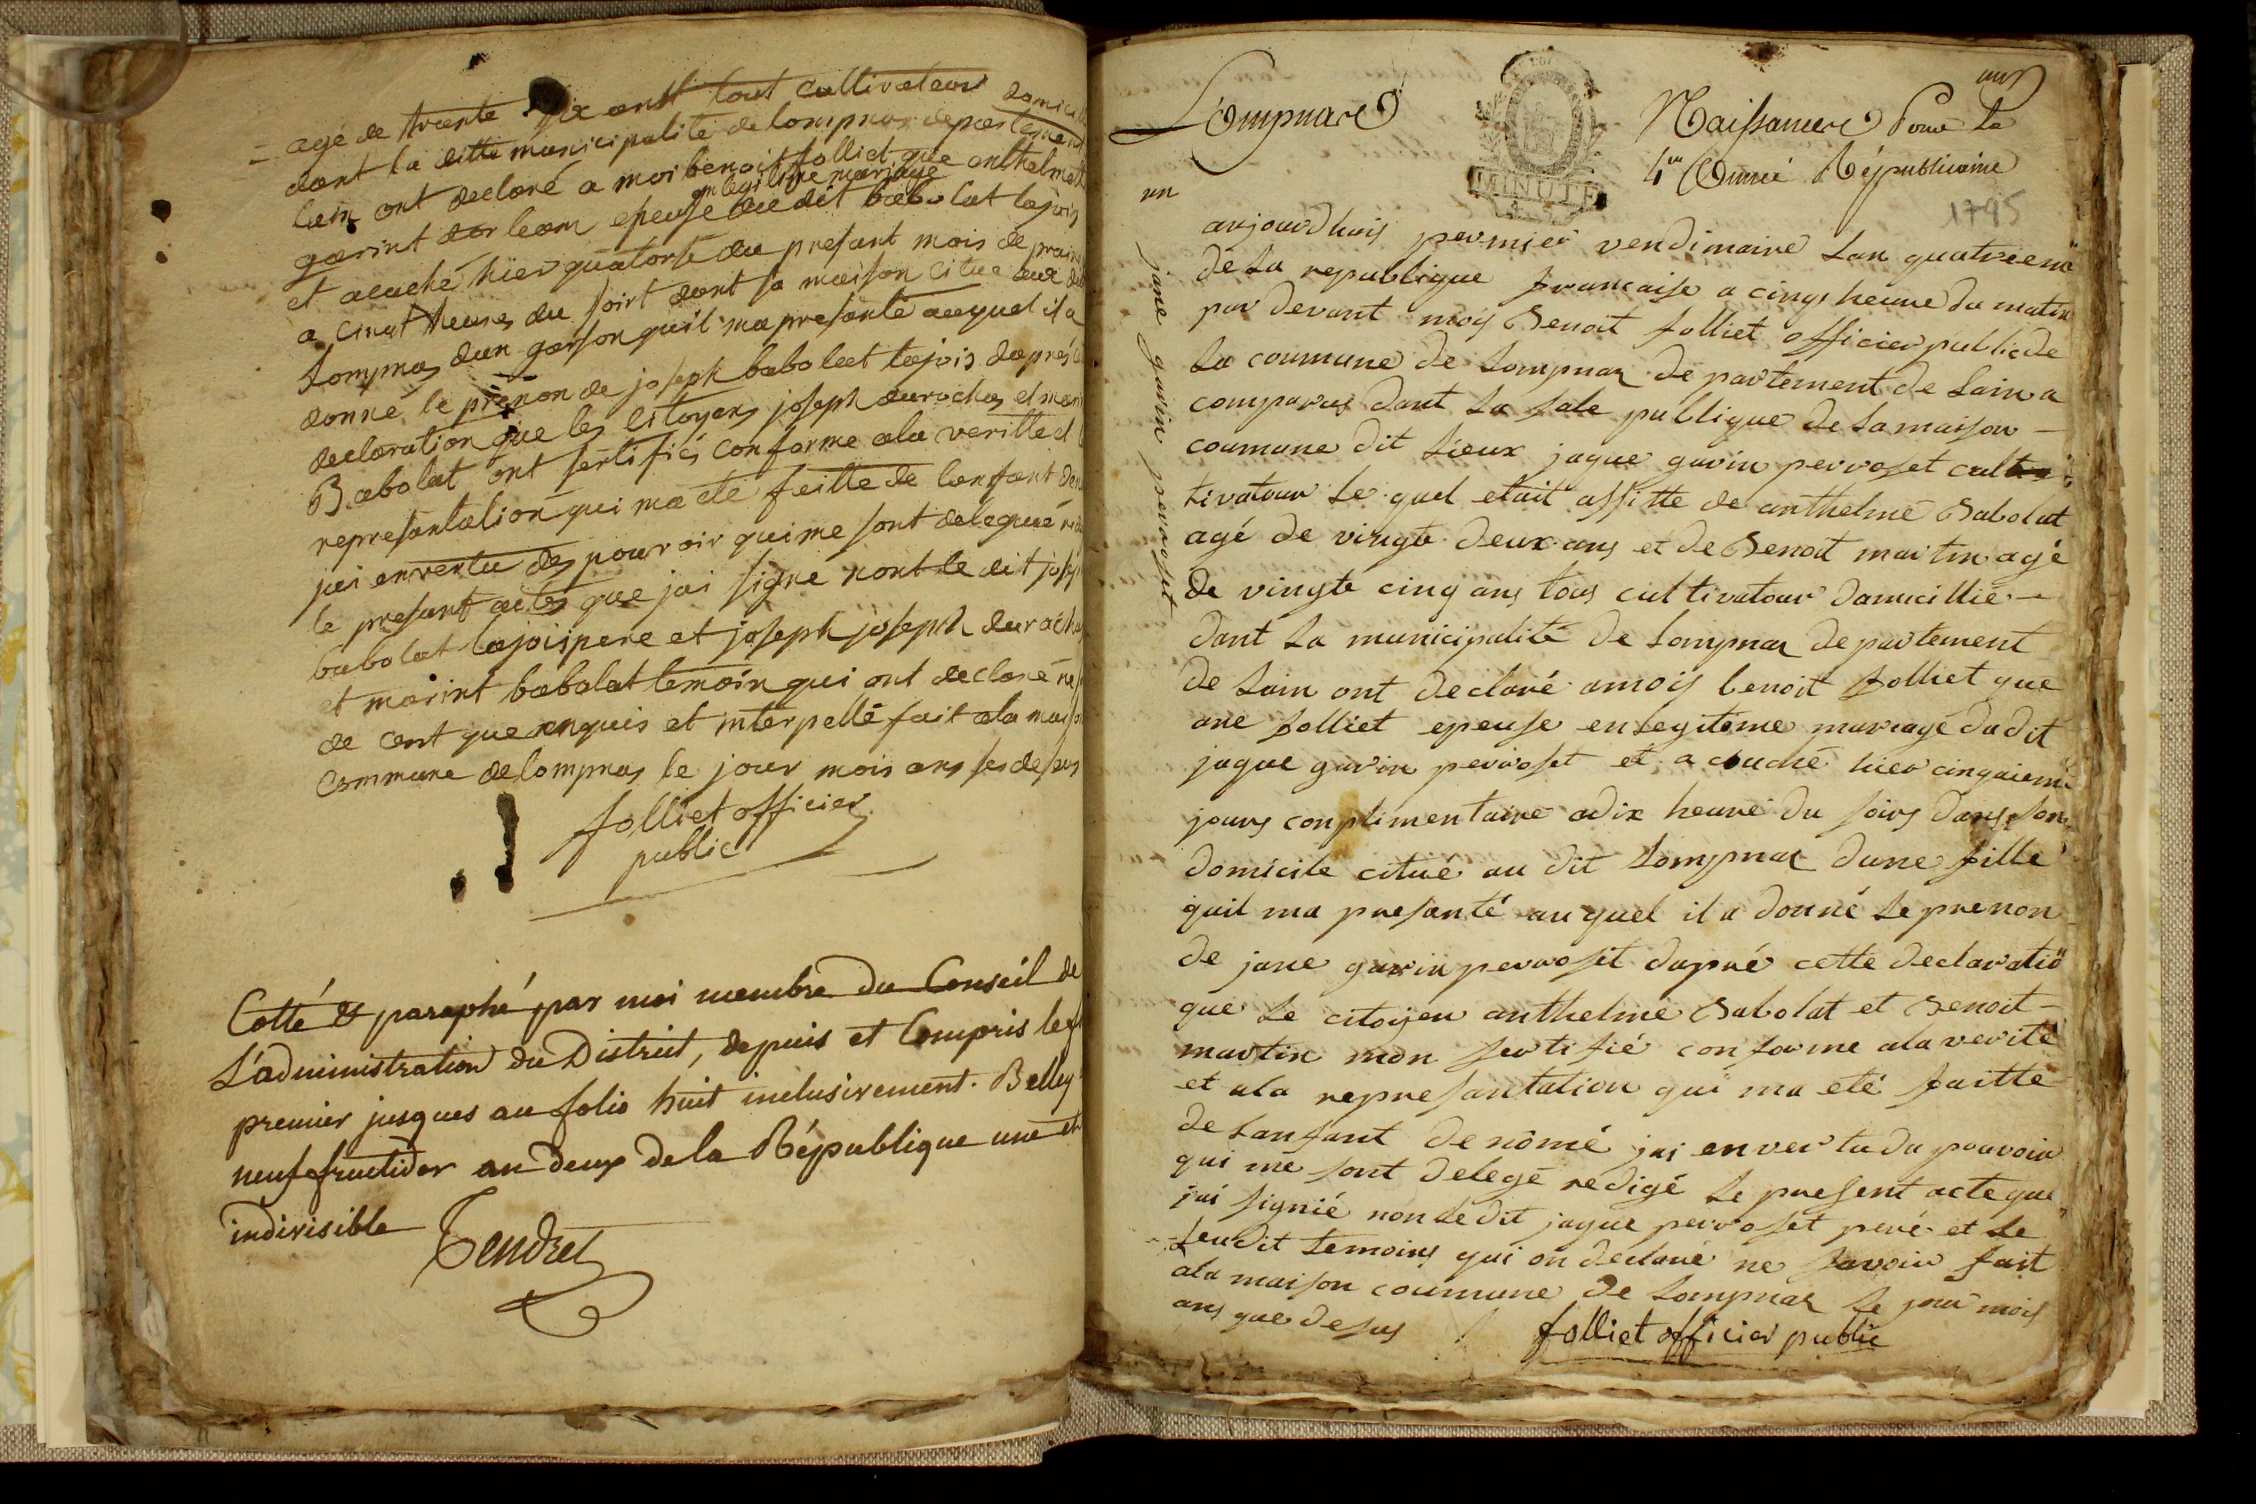 agé de trante six anst tout cultivateur domicil
dant la ditte municipalité de lompnas departement
lain ont declaré a moi benoit folliet que anthelmet
en legitime mariage
garint dor leam epeuse du dit babolat lajois
et acuché hier quatorse du presant mois de prair
a cinct heures du soirt dant sa maison citue aux dit
Lompnas dun garson quil ma presanté auquel il a
donné le prenon de joseph babolat lajois daprés
declaration que les citoyens joseph durochas et mari
Babolat ont sertifiés conforme ala verittè et
represantation qui ma eté faitte de lanfant den
jai enventu des pouvoir qui me sont delegué re
le presant actes que jai signe nont le dit josep
babolat lajois pere et joseph joseph durocha
et marint babolat temoin qui ont declaré ne
de cent que anquis et interpellé fait ala maiso
commune delompnas le jour mois ans ses desus
folliet officier
public
Cotté & paraphé par moi membre du Conseil de
L'administration du District, depuis et Compris le f
premier jusques au folio huit inclusivement. Belley
neuf fructidor an deux de la République une et
indivisible
Tendret
Lompnas
MINUTE
un
Naissances Pour la
4me Année Républicaine
1795
un
jane garin perroset
aujourdhuis permier vendimaire lan quatrieme
de la republique francaise a cinqs heure du matin
par devant mois Benoit folliet officier public de
La coumune de Lompnaz departement de Lain a
comparus dant la sale publique de la maison
coumune dit Lieux jaque garin perroset cult
tivatour le quel etait assitte de anthelme Babolat
agé de vingte deux ans et de Benoit martin agé
de vingte cinq ans tous cultivatour domicillié
dant la municipalité de Lompnaz departement
de Lain ont declaré amois benoit folliet que
ane folliet epeuse en legitime mariage dudit
jaque garin perroset et a couché hier cinqaieme
jours conplimentaire adix heure du soirs dans son
domicile citué au dit Lompnaz dune fille
quil ma presanté auquel il a donné le prenon
de jane garin perroset dapré cette declaratio
que le citoyen anthelme Babolat et Benoit
martin mon sertifié conforme ala verité
et ala represantation qui ma eté faitte
de lanfant denomé jai en vertu du pouvoir
qui me sont delegé redigé le present acte que
jai signié non le dit jaque perroset peré et le
seudit temoins qui on declaré ne savoir fait
ala maison coumune de Lompnaz le jour mois
ans que desus
folliet officier public